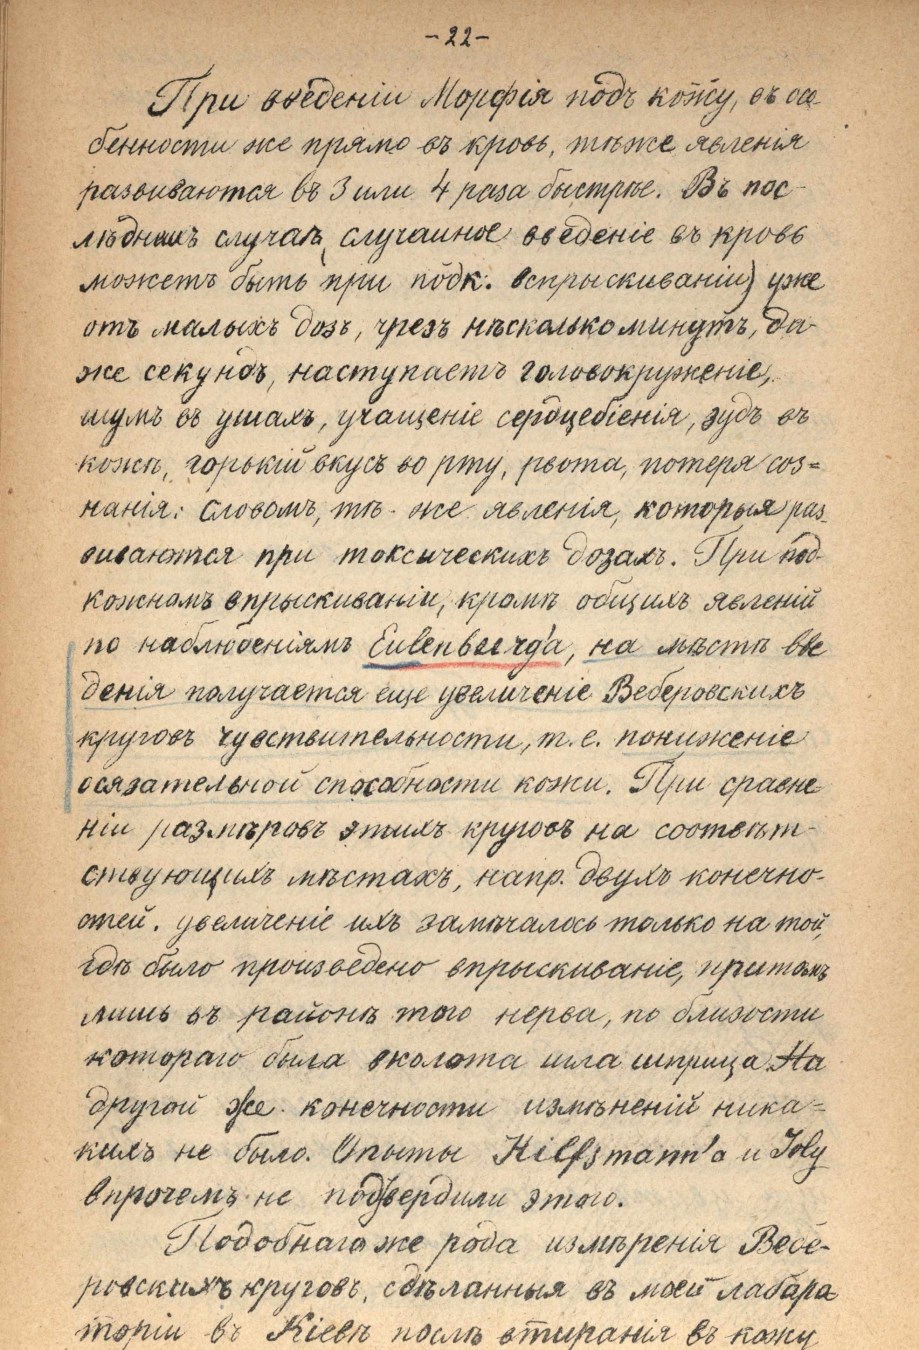 -22-
При введеніи Морфія подъ кожу, въ осо-
бенности же прямо въ кровь, тѣже явленія
развиваются въ 3 или 4 раза быстрѣе. Въ пос-
лѣднемъ случаѣ (случайное введеніе въ кровь
можетъ быть при подк. вспрыскиваніи) уже
отъ малыхъ дозъ, чрезъ нѣсколько минутъ, да-
же секундъ, наступаетъ головокруженіе,
шумъ въ ушахъ, учащеніе сердцебіенія, зудъ въ
кожѣ, горькій вкусъ во рту, рвота, потеря соз=
нанія: словомъ, тѣ-же явленія, которыя раз-
виваются при токсическихъ дозахъ. При под-
кожномъ впрыскиваніи, кромѣ общихъ явленій
по наблюденіямъ Eulenburg'а, на мѣстѣ вве
денія получается еще увеличеніе Веберовскихъ
круговъ чувствительности, т.е. пониженіе
осязательной способности кожи. При сравне-
ніи размѣровъ этихъ круговъ на соотвѣт-
ствующихъ мѣстахъ, напр. двухъ конечно-
стей. увеличеніе ихъ замѣчалось только на той,
гдѣ было произведено впрыскиваніе, притомъ
лишь въ районѣ того нерва, по близости
котораго была вколота игла шприца. На
другой же конечности измѣненій ника=
кихъ не было. Опыты Hilfsmann'а и Joly
впрочемъ не подтвердили этого.
Подобнаго же рода измѣренія Вебе-
ровскихъ круговъ, сдѣланныя въ моей лабара
торіи въ Кіевѣ послѣ втиранія въ кожу